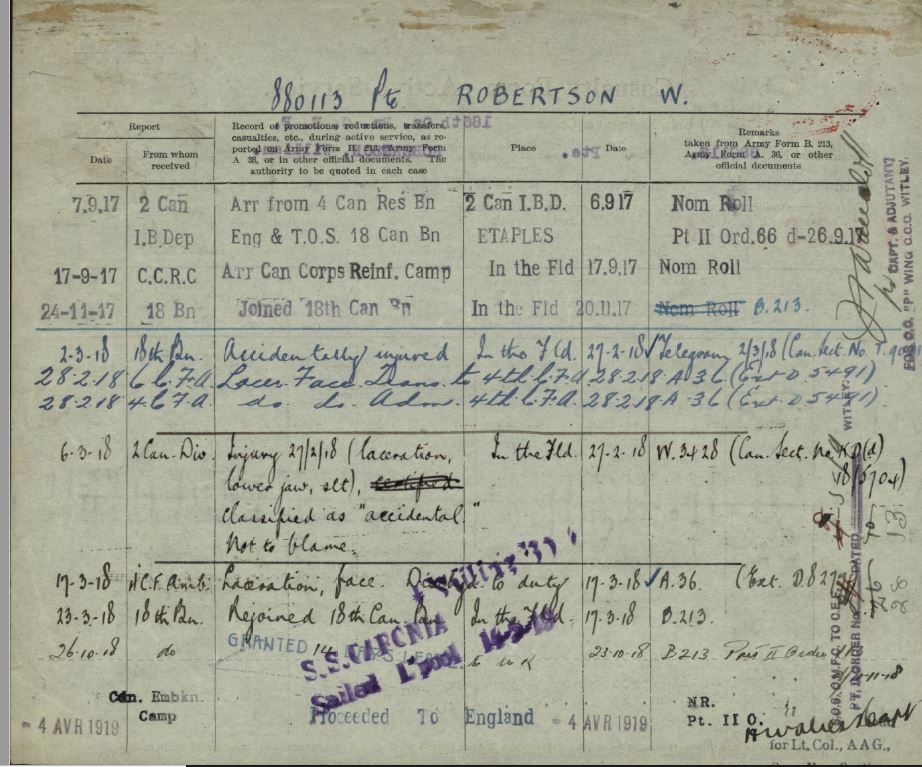 880113 Pte ROBERTSON W.
Report
Date
From whom received
Record of promotions, reductions, transfers, casualties, etc., during active service, as reported on Army Form B. 213, Army Form A 36, or in other official documents. The authority to be quoted in each case
Place
Date
Remarks
taken from Army Form B. 213, Army Form A. 36, or other official documents
7.9.17 2 Can Arr from 4 Can Res Bn 2 Can I.B.D. 6.9.17 Nom Roll
I.B.Dep Eng & T.O.S. 18 Can Bn ETAPLES Pt II Ord.66 d-26.9.17
17-9-17 C.C.R.C Arr Can Corps Reinf. Camp In the Fld 17.9.17 Nom Roll
24-11-17 18 Bn Joined 18th Can Bn In the Fld 20.11.17 Nom Roll B.213.
2-3-18 18th Bn. Accidentally injured In the Fld. 27-2-18 Telegram 2/3/18 (Can. Sect. No. T.
28.2.18 6 C.F.A. Lacer. Face. Trans. to 4th C.F.A. 28.2.18 A.36 (Ext D 5491)
28.2.18 4 C.F.A. do. do. Adm. 4th C.F.A. 28.2.18 A.36 (Ext. D 5491)
6-3-18 2 Can. Div. Injury 27/2/18 (laceration, In the Fld. 27-2-18 W.3428 (Can. Sect. No.
lower jaw, slt), certified
classified as "accidental."
Not to blame.
17-3-18 Laceration, face. to duty 17-3-18 A.36. (Ext. D.
23-3-18 18th Bn. Rejoined 18th Can. Bn. In the Fld. 17-3-18 B.213.
26-10-18 do GRANTED 14 DAYS LEAVE to UK 23-10-18 B213 Part II Order
-11-18
S.S. CARONIA
Sailed L'pool
Can. Embkn. Camp
- 4 AVR 1919 Proceeded To England - 4 AVR 1919 NR.
Pt. II O.
Capt
for Lt. Col., A.A.G.,
CAPT. & ADJUTANT
"P" WING C.C.C. WITLEY.
S.O.S. O.M.F.C. TO C.E.F.
WITLEY.
PT. II ORDER No. DATED